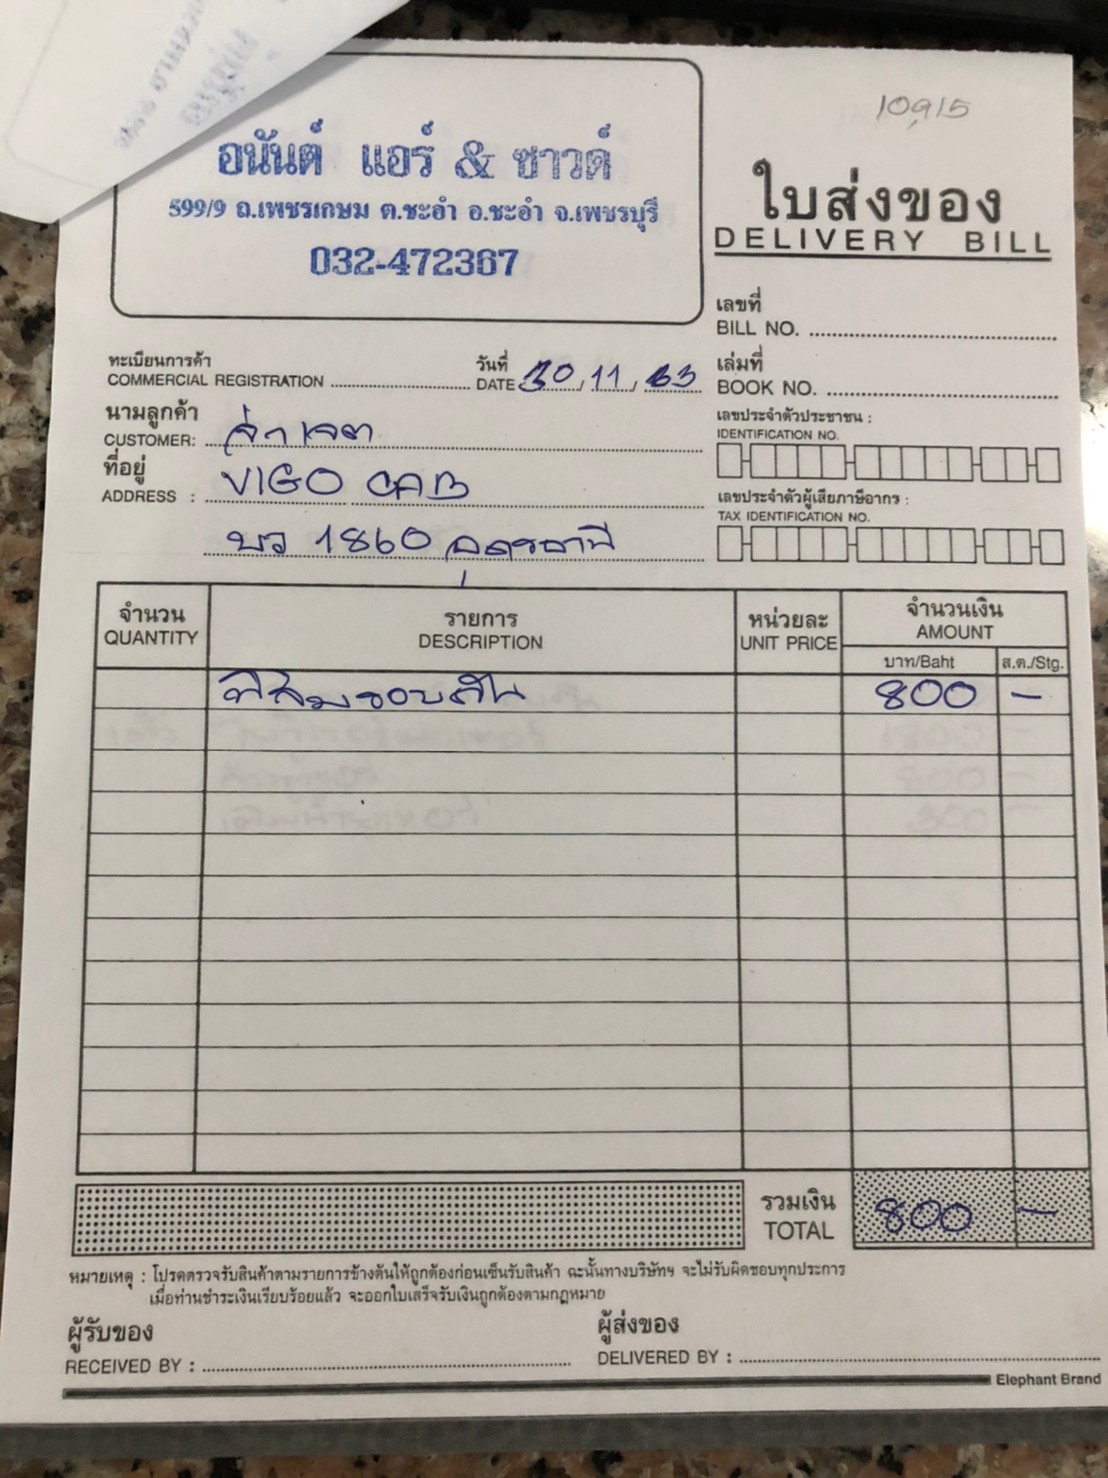 10915
อนันต์ แอร์ & ซาวด์
599/9 ถ.เพชรเกษม ต.ชะอำ อ.ชะอำ จ.เพชรบุรี
032-472367
ใบส่งของ
DELIVERY BILL
เลขที่
BILL NO.
ทะเบียนการค้า
COMMERCIAL REGISTRATION
วันที่
DATE 30/11/63
เล่มที่
BOOK NO.
นามลูกค้า
CUSTOMER: จ่าเจต
ที่อยู่
ADDRESS : VIGO CAB
บว 1860 อุดรธานี
เลขประจำตัวประชาชน :
IDENTIFICATION NO.
เลขประจำตัวผู้เสียภาษีอากร :
TAX IDENTIFICATION NO.
จำนวน รายการ หน่วยละ จำนวนเงิน
QUANTITY DESCRIPTION UNIT PRICE AMOUNT
บาท/Baht ส.ต./Stg.
ฟิล์มรอบคัน 800 –
รวมเงิน
TOTAL 800 –
หมายเหตุ : โปรดตรวจรับสินค้าตามรายการข้างต้นให้ถูกต้องก่อนเซ็นรับสินค้า ฉะนั้นทางบริษัทฯ จะไม่รับผิดชอบทุกประการ
เมื่อท่านชำระเงินเรียบร้อยแล้ว จะออกใบเสร็จรับเงินถูกต้องตามกฎหมาย
ผู้รับของ
RECEIVED BY :
ผู้ส่งของ
DELIVERED BY :
Elephant Brand